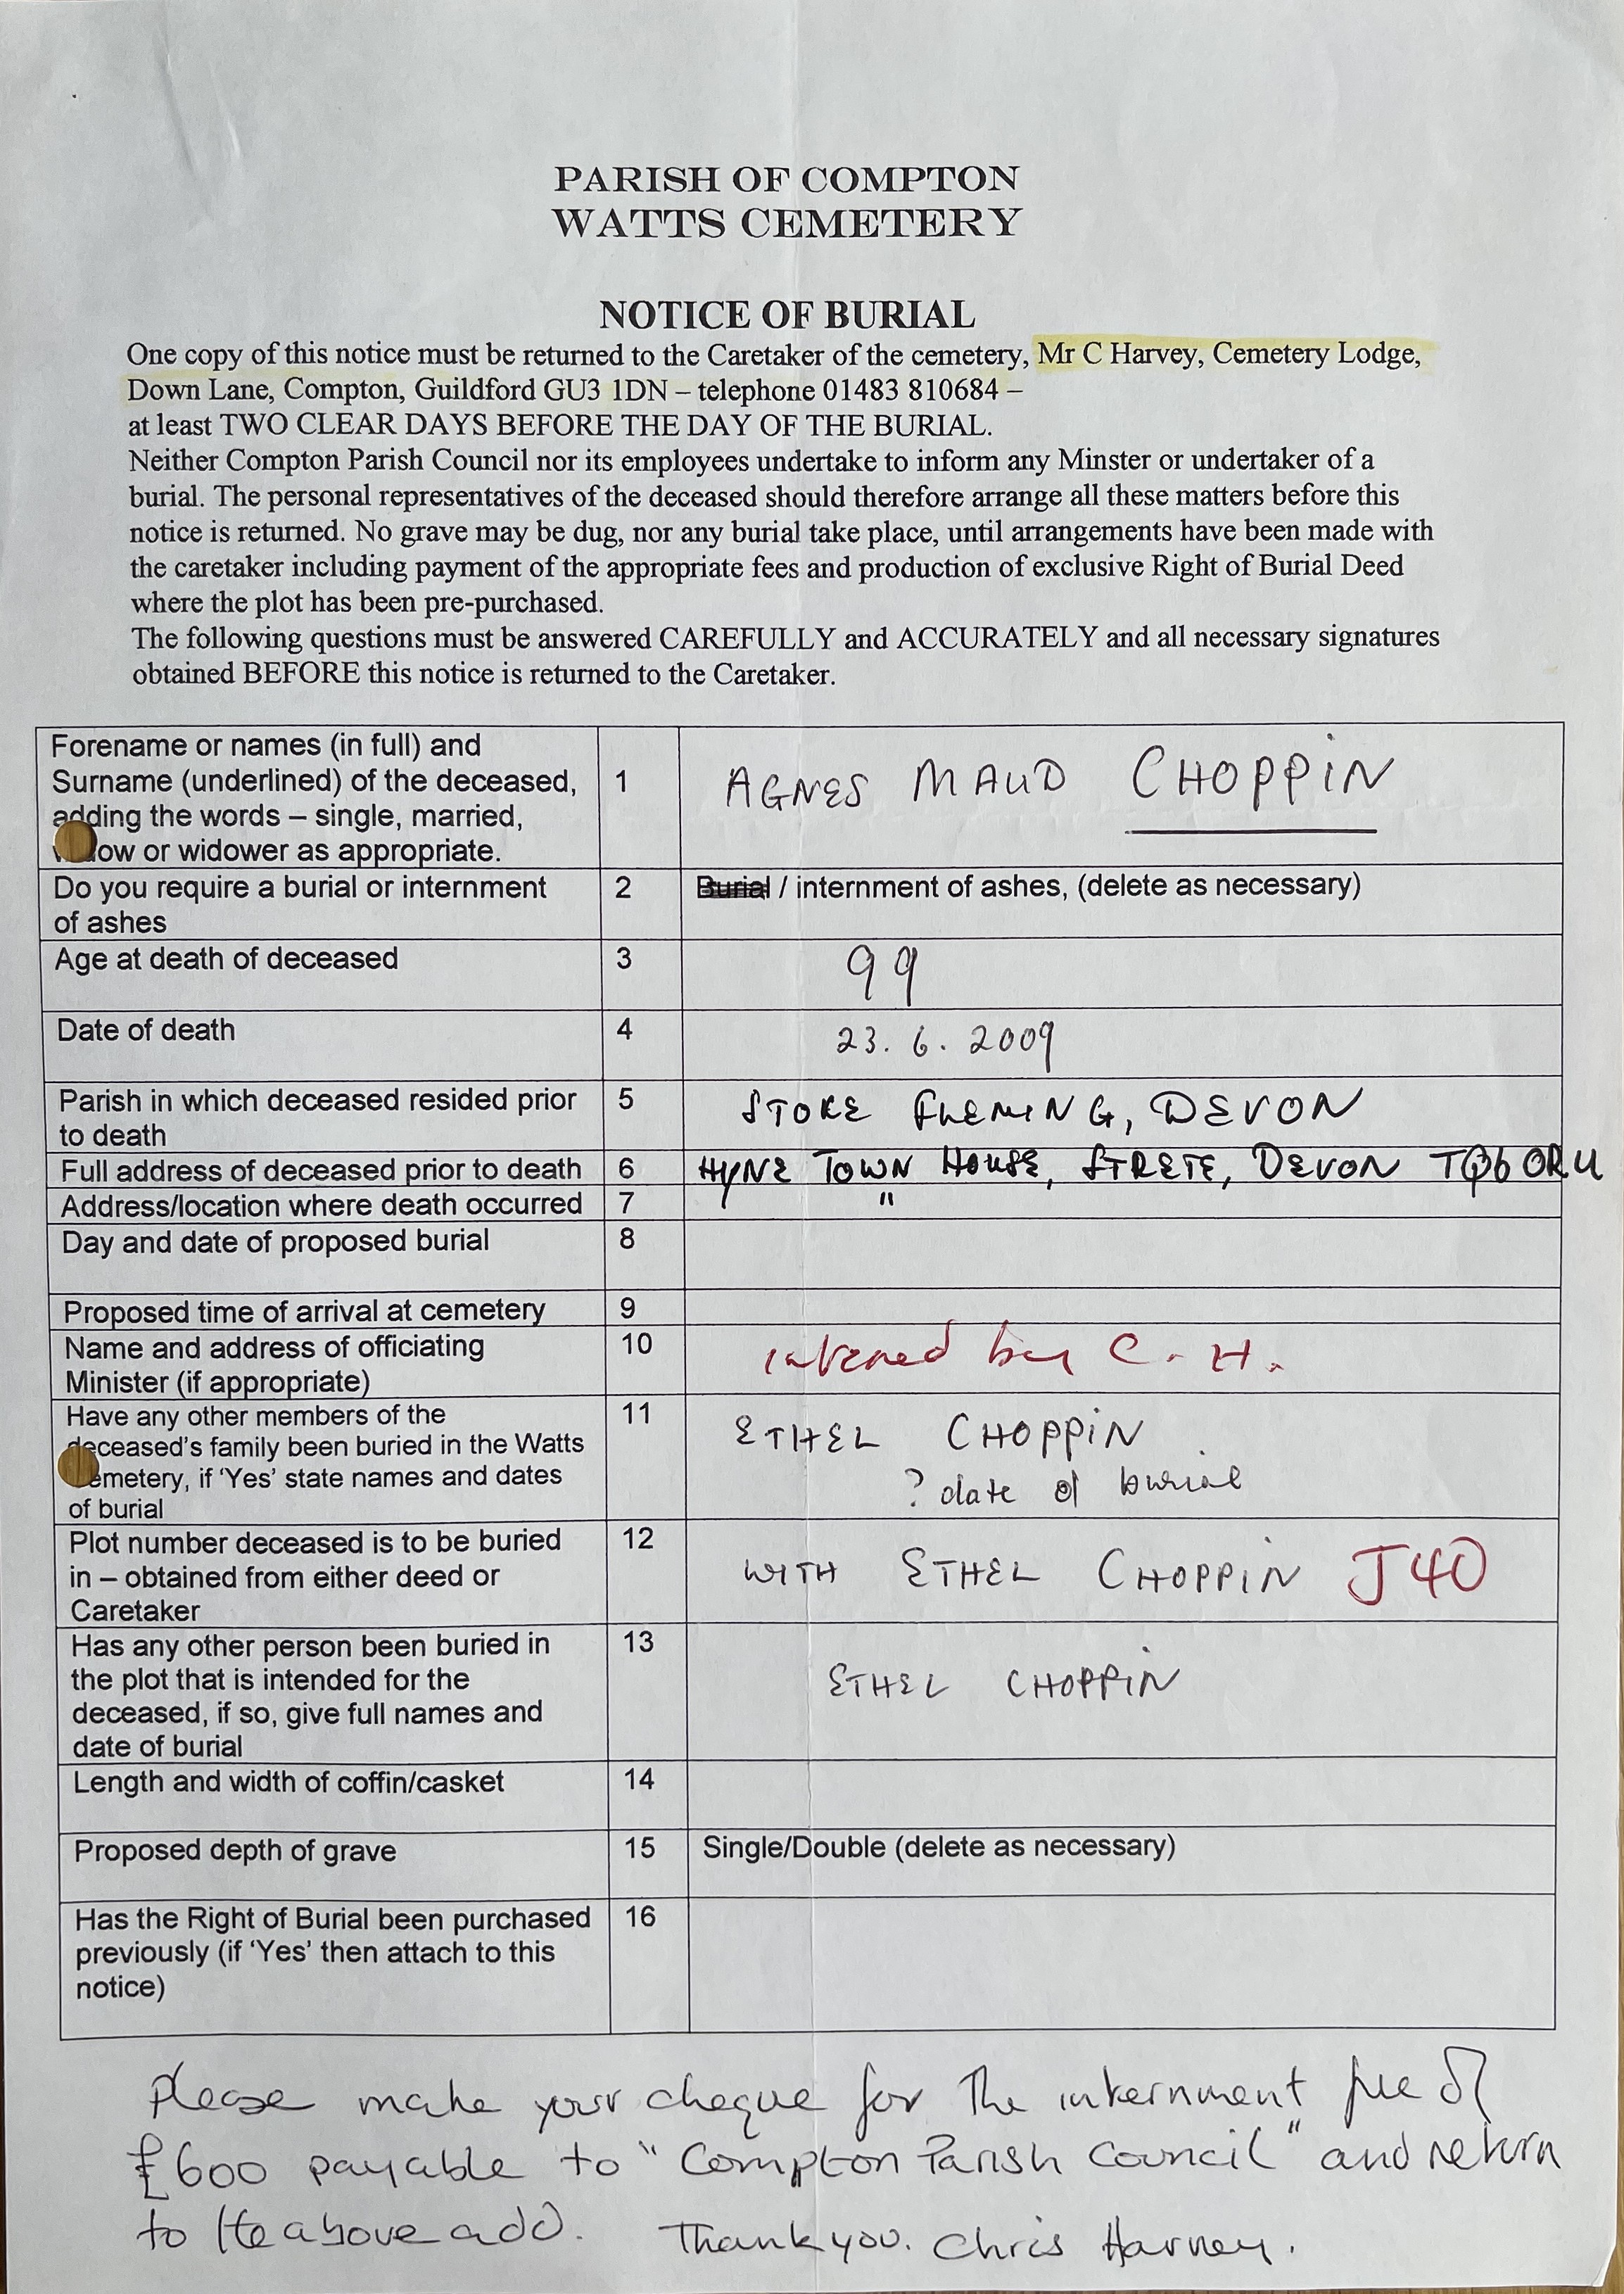 PARISH OF COMPTON
WATTS CEMETERY
NOTICE OF BURIAL
One copy of this notice must be returned to the Caretaker of the cemetery, Mr C Harvey, Cemetery Lodge,
Down Lane, Compton, Guildford GU3 1DN – telephone 01483 810684 –
at least TWO CLEAR DAYS BEFORE THE DAY OF THE BURIAL.
Neither Compton Parish Council nor its employees undertake to inform any Minster or undertaker of a
burial. The personal representatives of the deceased should therefore arrange all these matters before this
notice is returned. No grave may be dug, nor any burial take place, until arrangements have been made with
the caretaker including payment of the appropriate fees and production of exclusive Right of Burial Deed
where the plot has been pre-purchased.
The following questions must be answered CAREFULLY and ACCURATELY and all necessary signatures
obtained BEFORE this notice is returned to the Caretaker.
Forename or names (in full) and
Surname (underlined) of the deceased,
adding the words – single, married,
ow or widower as appropriate.
1
AGNES MAUD CHOPPIN
Do you require a burial or internment
of ashes
2
Burial / internment of ashes, (delete as necessary)
Age at death of deceased
3
99
Date of death
4
23. 6. 2009
Parish in which deceased resided prior
to death
5
STOKE FLEMING, DEVON
Full address of deceased prior to death
6
HYNE TOWN HOUSE, STRETE, DEVON TQ6 0RU
Address/location where death occurred
7
"
Day and date of proposed burial
8
Proposed time of arrival at cemetery
9
Name and address of officiating
Minister (if appropriate)
10
intered by C. H.
Have any other members of the
deceased's family been buried in the Watts
emetery, if 'Yes' state names and dates
of burial
11
ETHEL CHOPPIN
? date of burial
Plot number deceased is to be buried
in – obtained from either deed or
Caretaker
12
WITH ETHEL CHOPPIN J40
Has any other person been buried in
the plot that is intended for the
deceased, if so, give full names and
date of burial
13
ETHEL CHOPPIN
Length and width of coffin/casket
14
Proposed depth of grave
15
Single/Double (delete as necessary)
Has the Right of Burial been purchased
previously (if 'Yes' then attach to this
notice)
16
Please make your cheque for the internment fee of
£600 payable to "Compton Parish Council" and return
to the above add. Thank you. Chris Harvey.